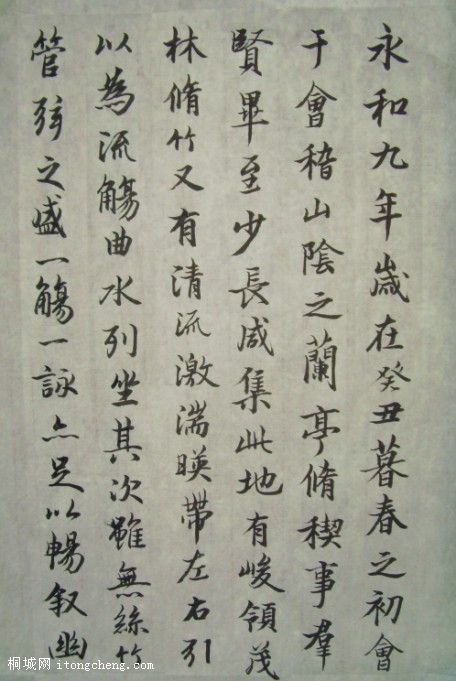 永和九年歲在癸丑暮春之初會
于會稽山陰之蘭亭脩稧事羣
賢畢至少長咸集此地有峻領茂
林脩竹又有清流激湍暎帶左右引
以為流觴曲水列坐其次雖無絲竹
管弦之盛一觴一詠亦足以暢叙幽
桐城网 itongcheng.com